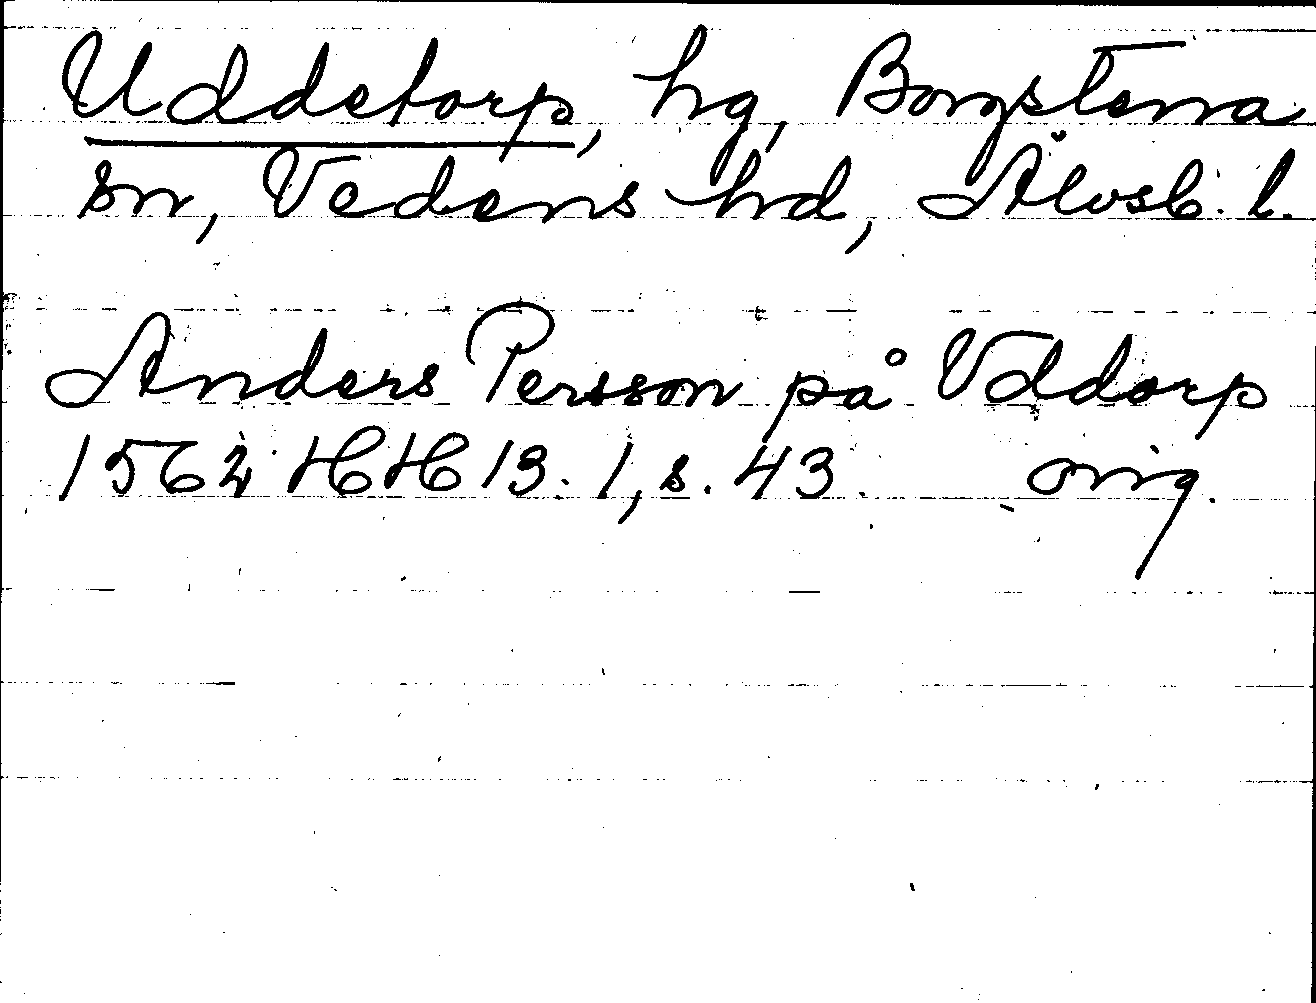 Uddetorp, hg, Borgstena
sn, Vedens hd, Älvsb. l.
Anders Persson på Vddorp
1562 HH 13. 1, s. 43. orig.